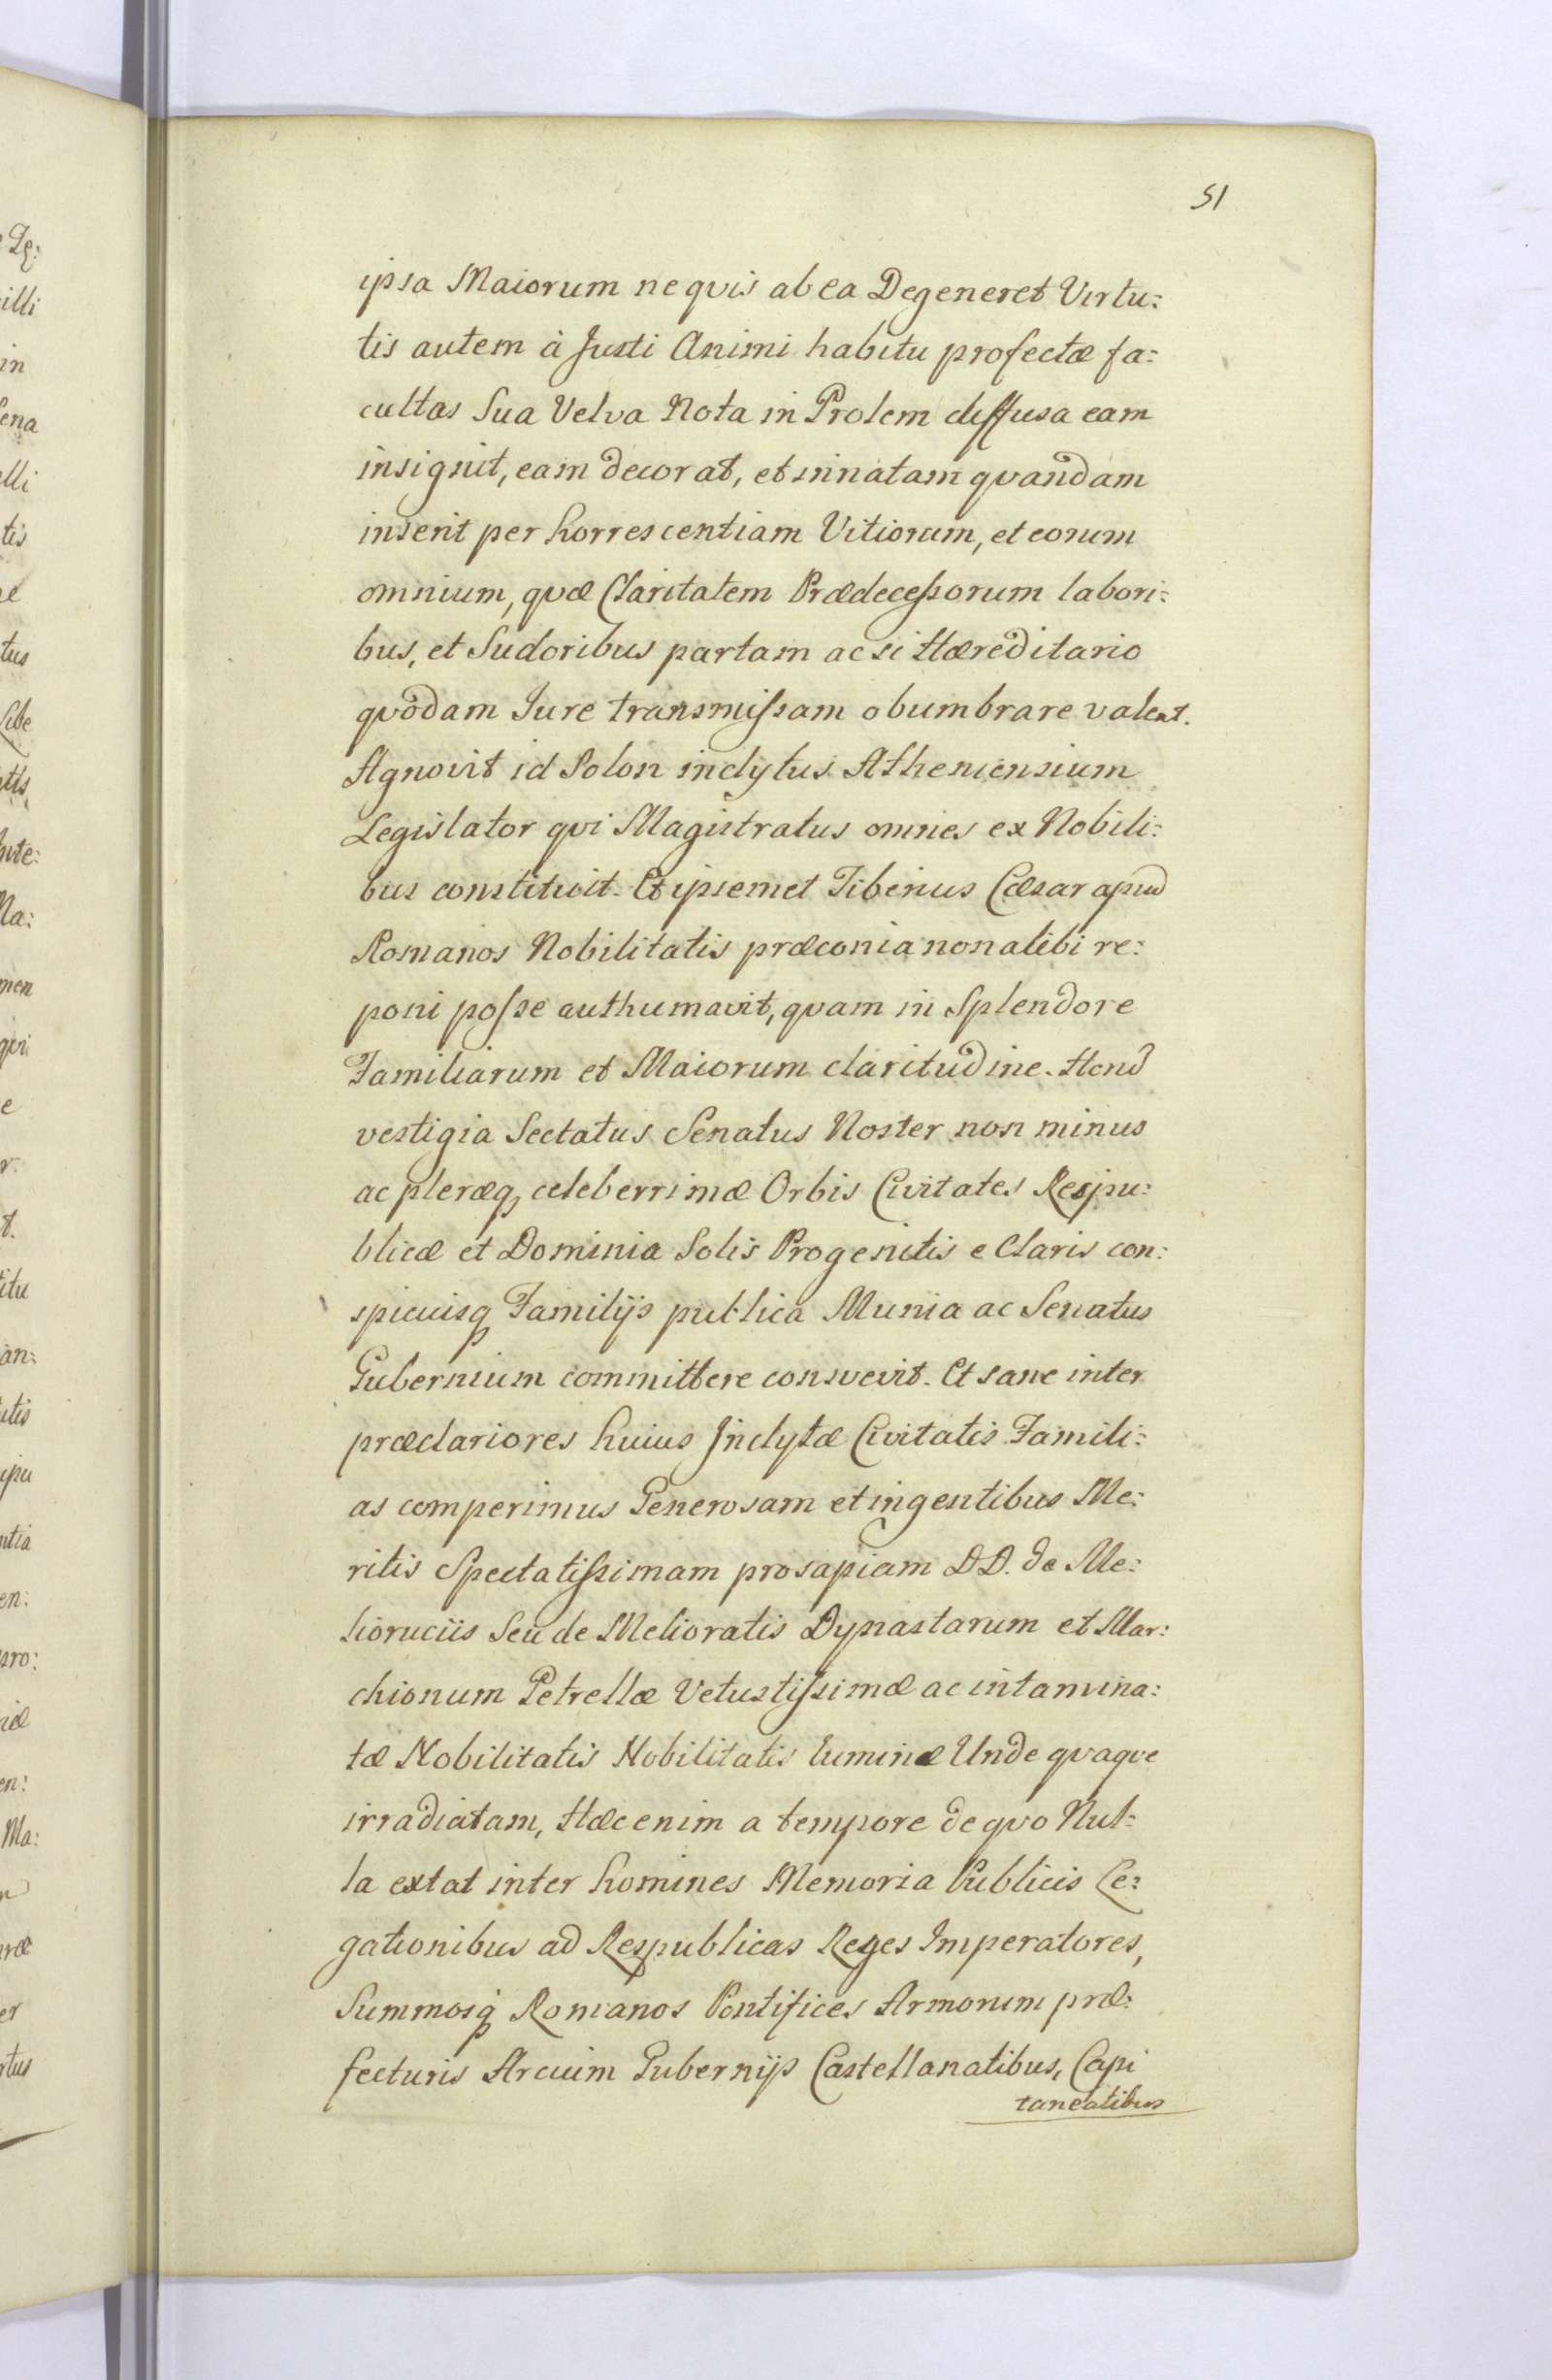 51
ipsa Maiorum ne qvis ab ea Degeneret Virtu:
tis autem à Justi Animi habitu profectæ fa:
cultas Sua Velva Nota in Prolem diffusa eam
insignit, eam decorat, et innatam qvandam
inserit per horrescentiam Vitiorum, et eorum
omnium, qvæ Claritatem Prædecessorum labori:
bus, et Sudoribus partam ac si Hæreditario
qvodam Jure transmissam obumbrare valent.
Agnovit id Solon inclytus Atheniensium
Legislator qvi Magistratus omnes ex Nobili:
bus constituit. Et ipsemet Tiberius Cæsar apud
Romanos Nobilitatis præconia non alibi re:
poni posse authumavit, qvam in Splendore
Familiarum et Maiorum claritudine.
vestigia Sectatus Senatus Noster non minus
ac pleræq celeberrimæ Orbis Civitates Respu:
blicæ et Dominia Solis Progenitis e Claris con:
spicuisq Familijs publica Munia ac Senatus
Gubernium committere consvevit. Et sane inter
præclariores huius Inclytæ Civitatis Famili:
as comperimus Generosam et ingentibus Me:
ritis Spectatissimam prosapiam DD. de Me:
lioruciis Seu de Melioratis Dynastarum et Mar:
chionum Petrellæ Vetustissimæ ac intamina:
tæ Nobilitatis Nobilitatis Unde qvaqve
irradiatam, Hæc enim a tempore de qvo Nul:
la extat inter homines Memoria Publicis Le:
gationibus ad Respublicas Reges Imperatores,
Summosq Romanos Pontifices Armorum præ:
fecturis Arcium Gubernijs Castellanatibus, Capi
taneatibus